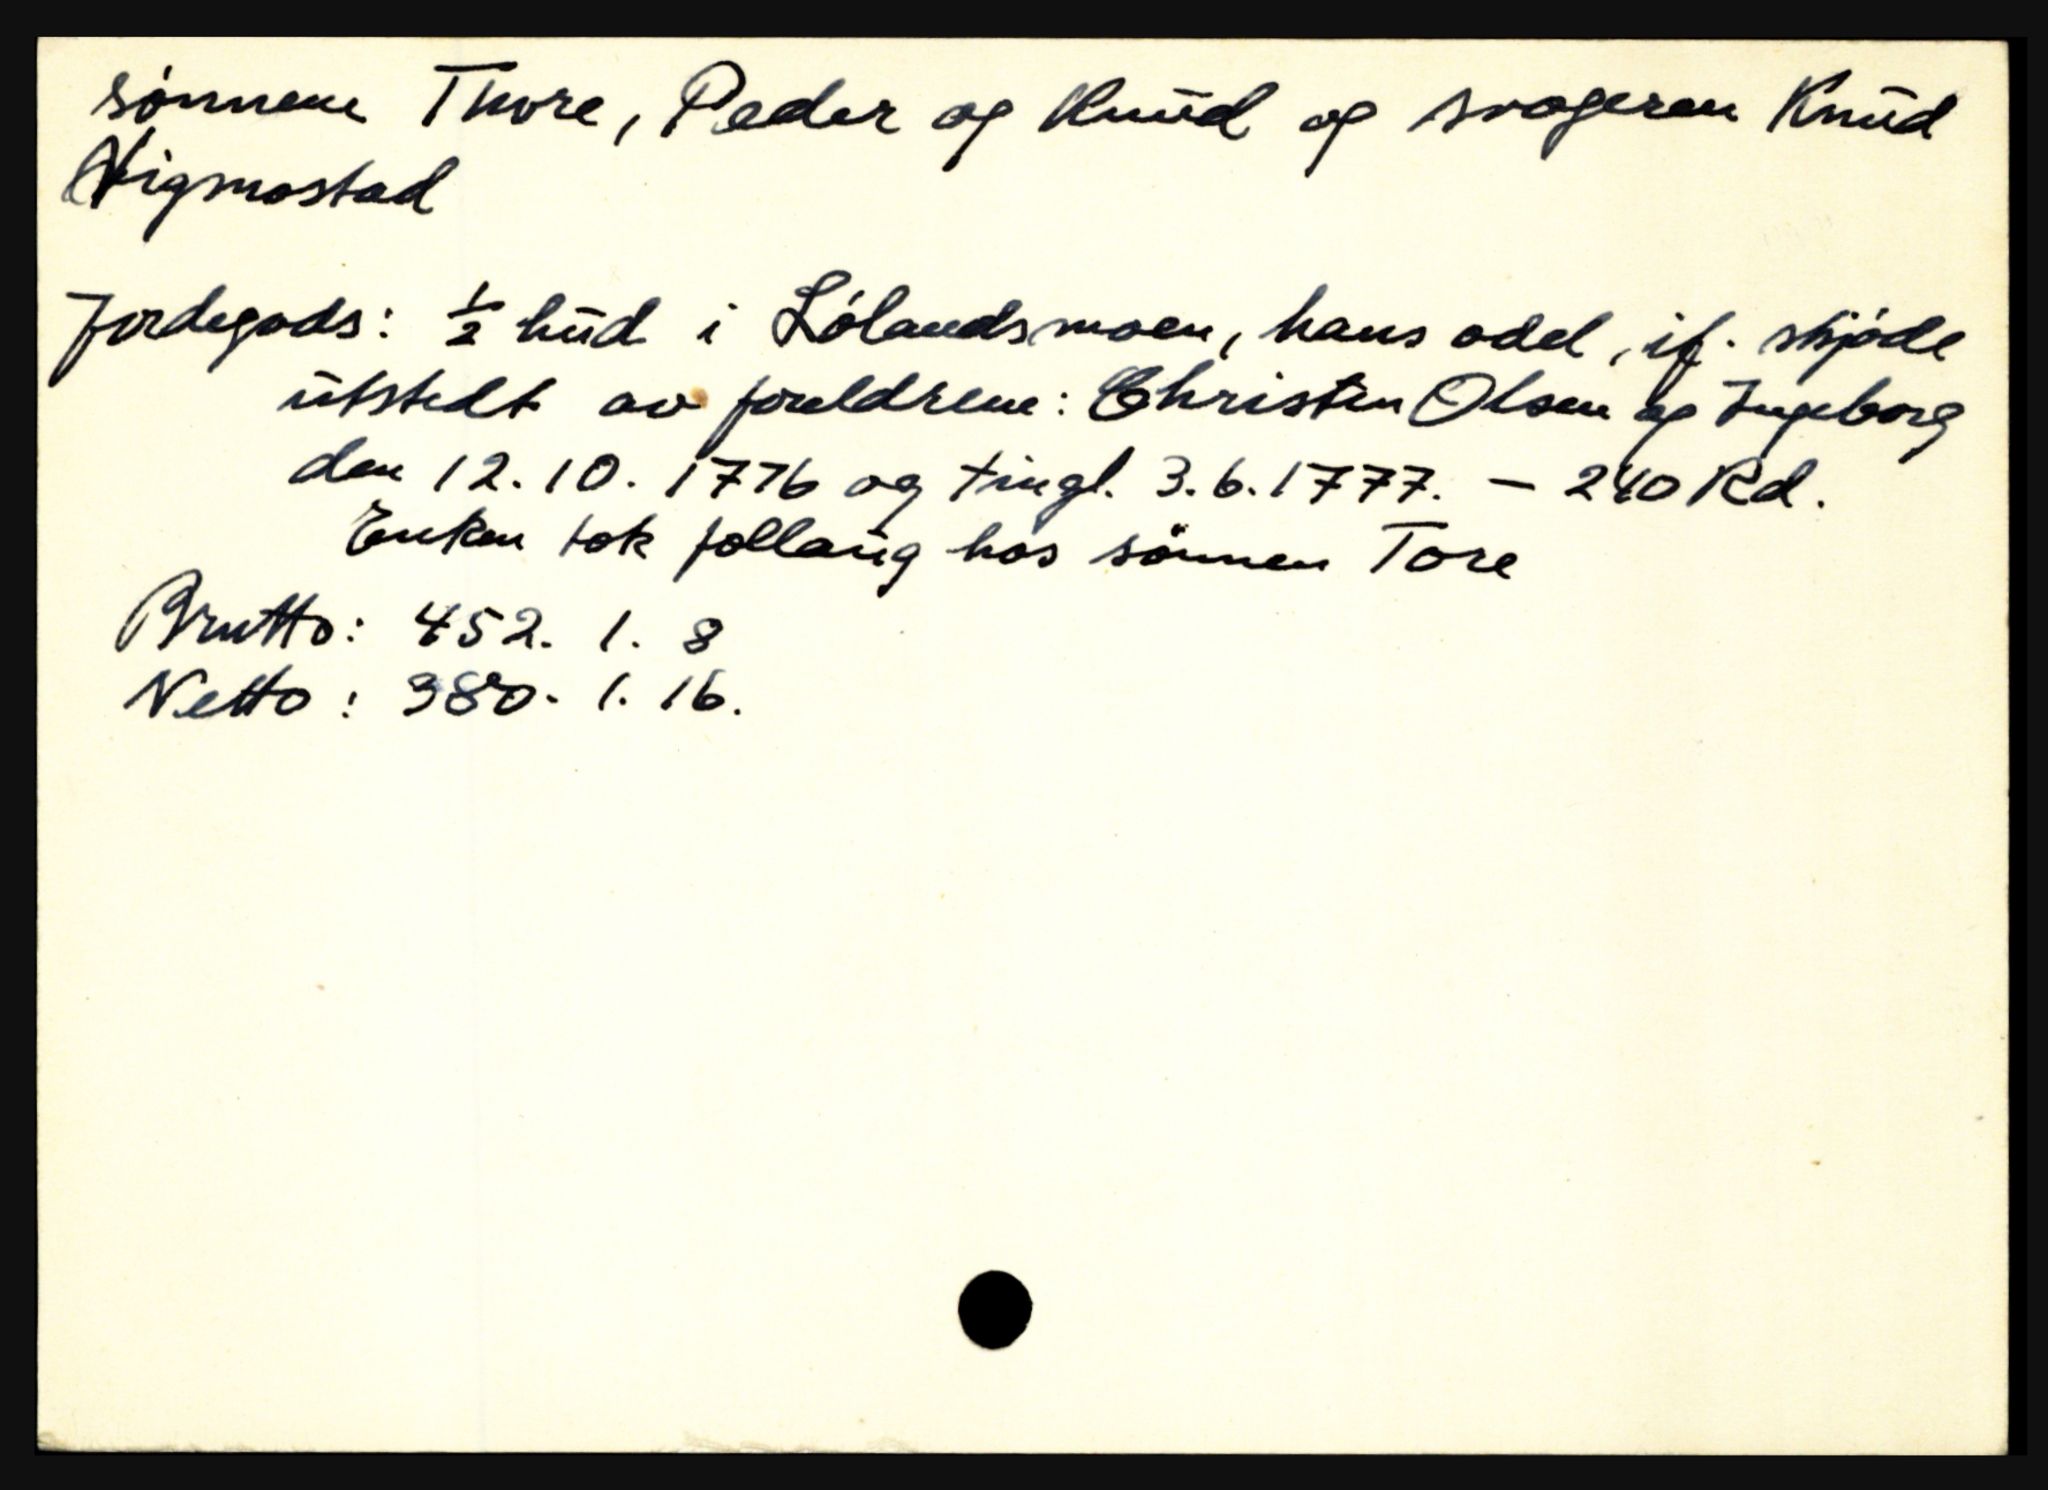 sónnene Thore, Peder og Knud og svogeren Knud
Higmostad
Jordegods: ½ hud i Lólandsmoen, hans odel, if. skjóde
utstedt av foreldrene: Christen Olsen og Ingeborg
den 12.10. 1776 og tingl. 3.6.1777. — 240 Rd.
Enken tok follaug hos sónnen Tore
Brutto: 452. 1. 8
Netto: 380. 1. 16.